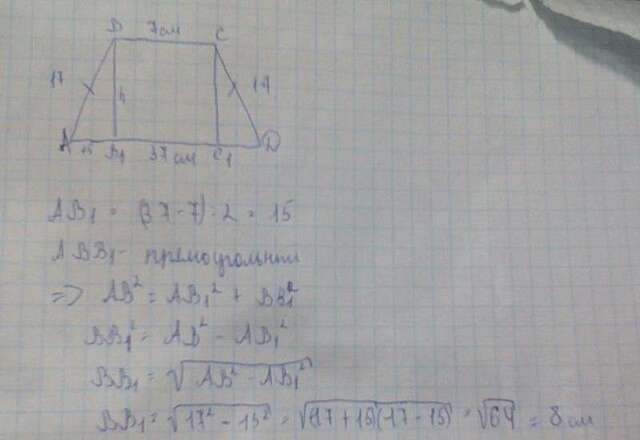 B 7см C
17 h 17
A 15 B₁ 37см C₁ D
AB₁ = (37-7):2 = 15
ABB₁ - прямоугольный
=> AB² = AB₁² + BB₁²
BB₁² = AB² - AB₁²
BB₁ = √(AB² - AB₁²)
BB₁ = √(17² - 15²) = √((17+15)(17-15)) = √64 = 8 см